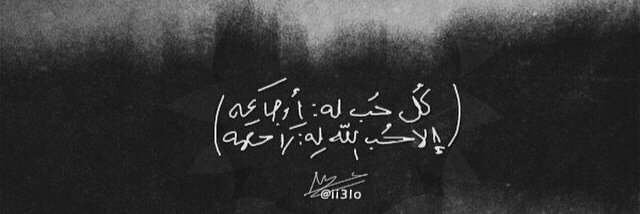 (كُل حُب له: أوجاعه
إلا حُب اللّه له: راحه)
@ii3lo